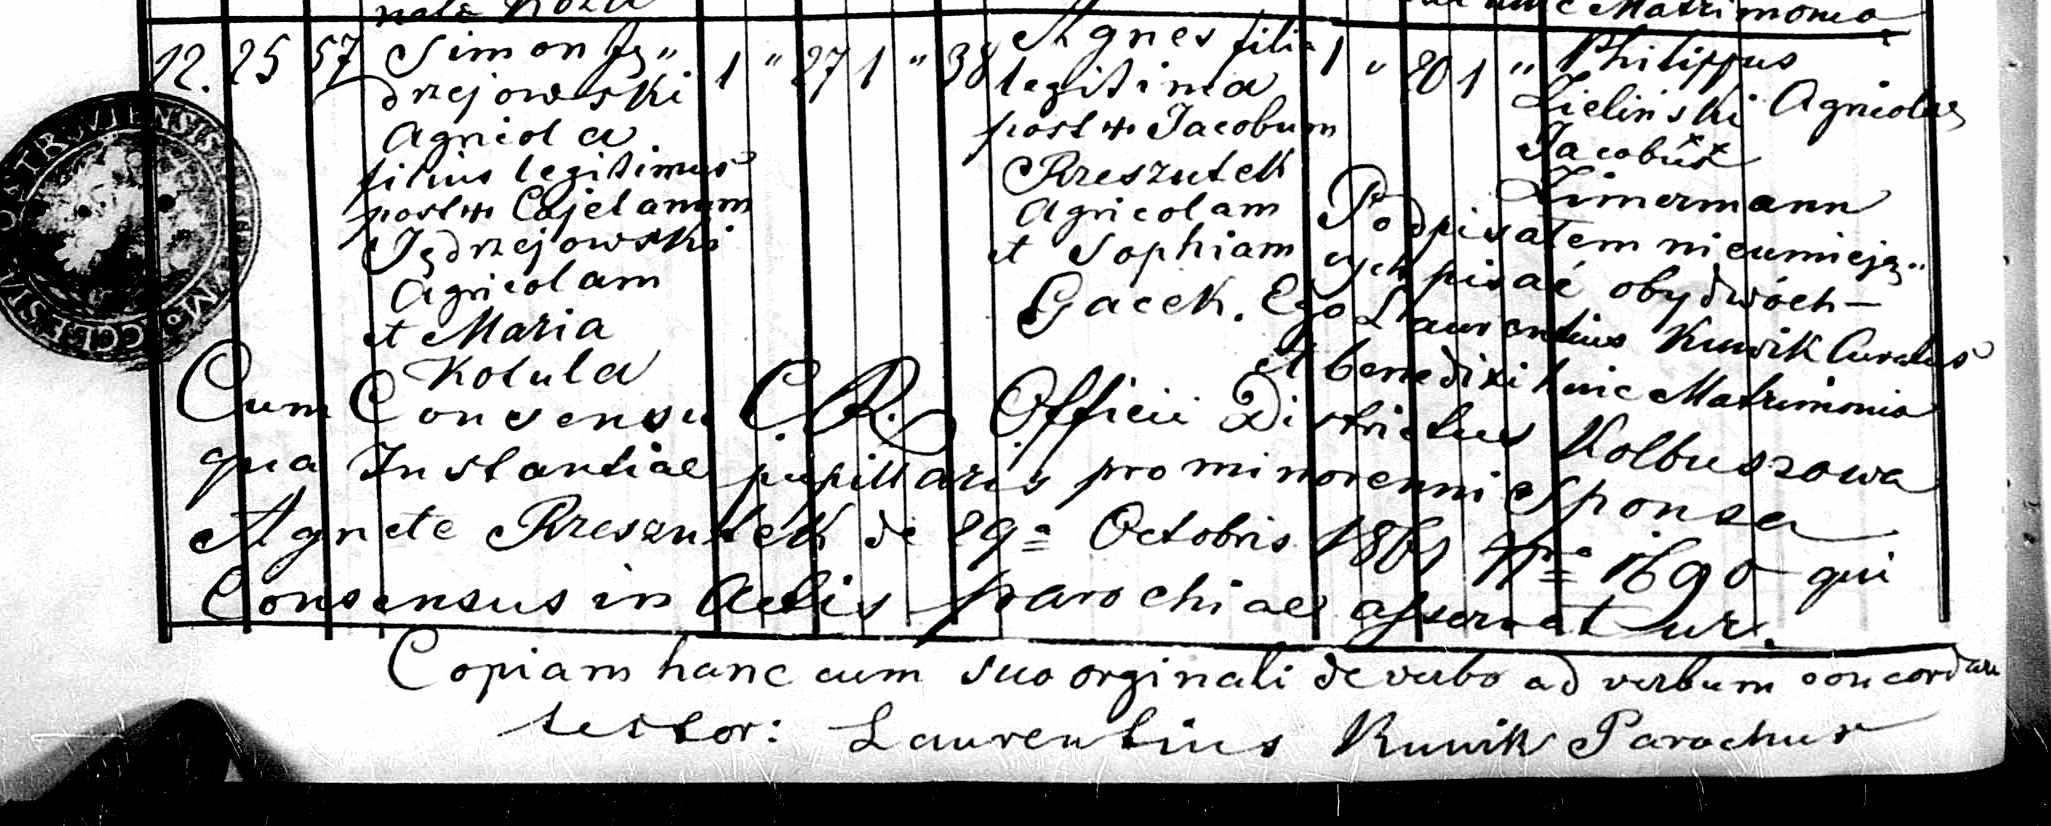 huic Matrimonio
12. 25 57 Simon Ję„
drzejowski
Agricola
filius legitimus
post ++ Cajetanum
Jędrzejowski
Agricolam
et Maria
Kotula
1 " 27 1 " 38
Agnes filia
legitima
post ++ Jacobum
Rzeszutek
Agricolam
et Sophiam
Gacek.
1 " 20 1 "
Philippus
Zieliński Agricolae
Jacobus xx
Zimermann
Podpisałem nieumieją„
cych pisać obydwóch —
Ego Laurentius Kuwik Curatus
et benedixi huic Matrimonio
Cum Consensu C. R. Officii Districtus Kolbuszowa
qua Instantiae pupillaris pro minorenni Sponsa
Agnete Rzeszutek de 29a Octobris 1861 Nro 1690 qui
Consensus in Actis parochiae asservatur.
Copiam hanc cum suo orginali de verbo ad verbum concordare
testor: Laurentius Kuwik Parochus